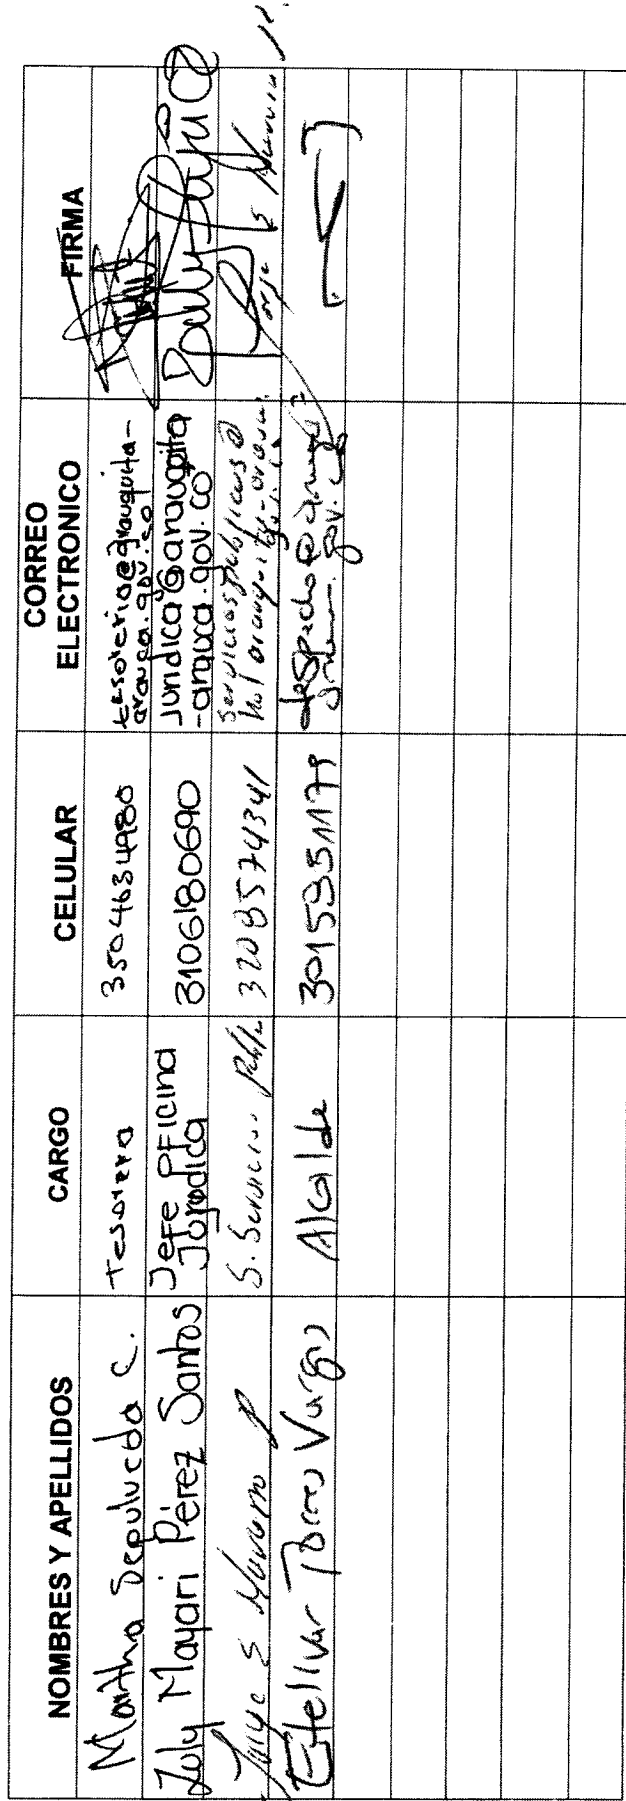 NOMBRES Y APELLIDOS CARGO CELULAR CORREO ELECTRONICO FIRMA
Martha Sepulveda C. Tesorera 3504634980 tesoreria@arauquita-
arauca.gov.co
Zuly Mayari Pérez Santos Jefe Oficina
Jurídica 3106180690 juridica@arauquita
-arauca.gov.co
Jorge S Navarro P S. Servicios 3208574341 serviciospublicos@
Estellivar Torres Vargas Alcalde 3015951179 despacho@